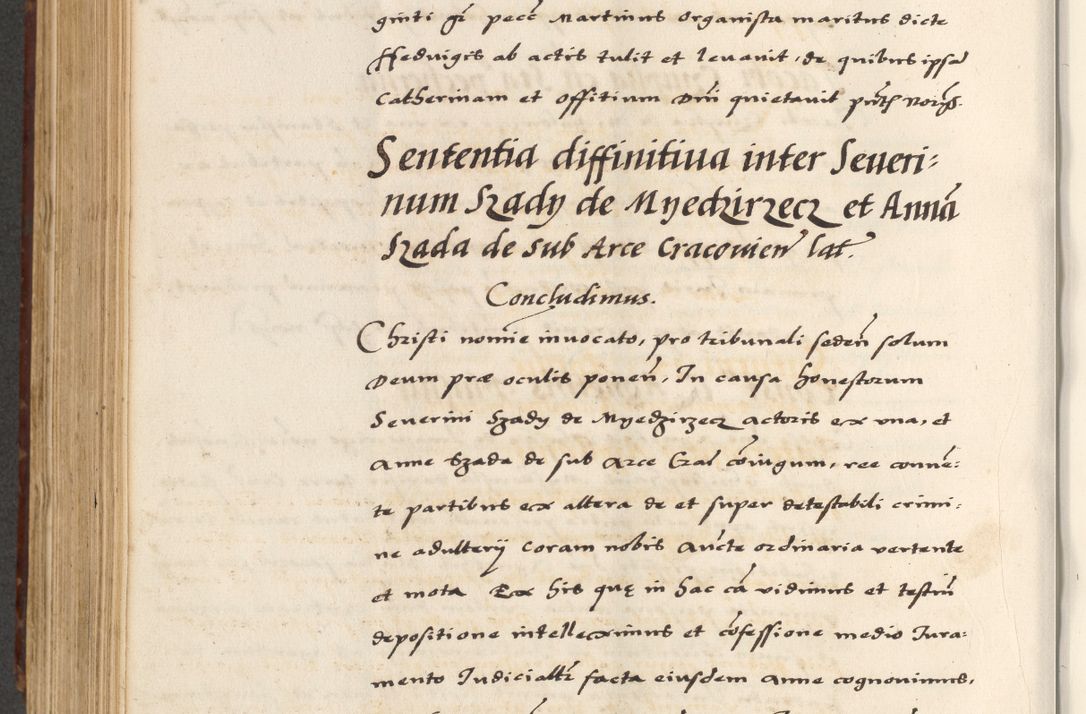 ginti gr pecc Martinus Organista maritus dicte
Hedvigis ab actis tulit et levavit, de quibus ipsa
Catherinam et offitium Dni quietavit pnth Norys.
Sententia diffinitiua inter Seueri=
num Szady de Myedzirzecz et Annā
Szada de sub Arce Cracouien lat.
Concludimus.
Christi nomie inuocato, pro tribunali seden solum
Deum præ oculis ponen, In causa honestorum
Seuerini Szady de Myedzirzecz actoris ex vna, et
Anne Szada de sub Arce Cral cōiugum, ree conuē=
te partibus ex altera de et super detestabili crimi=
ne adulterij coram nobis Aucte ordinaria vertente
et mota Ex his quę in hac cā vidimus et testiū
depositione intelleximus et cōfessione medio Iura=
mento Iudicialtr facta eiusdem Anne cognouimus,